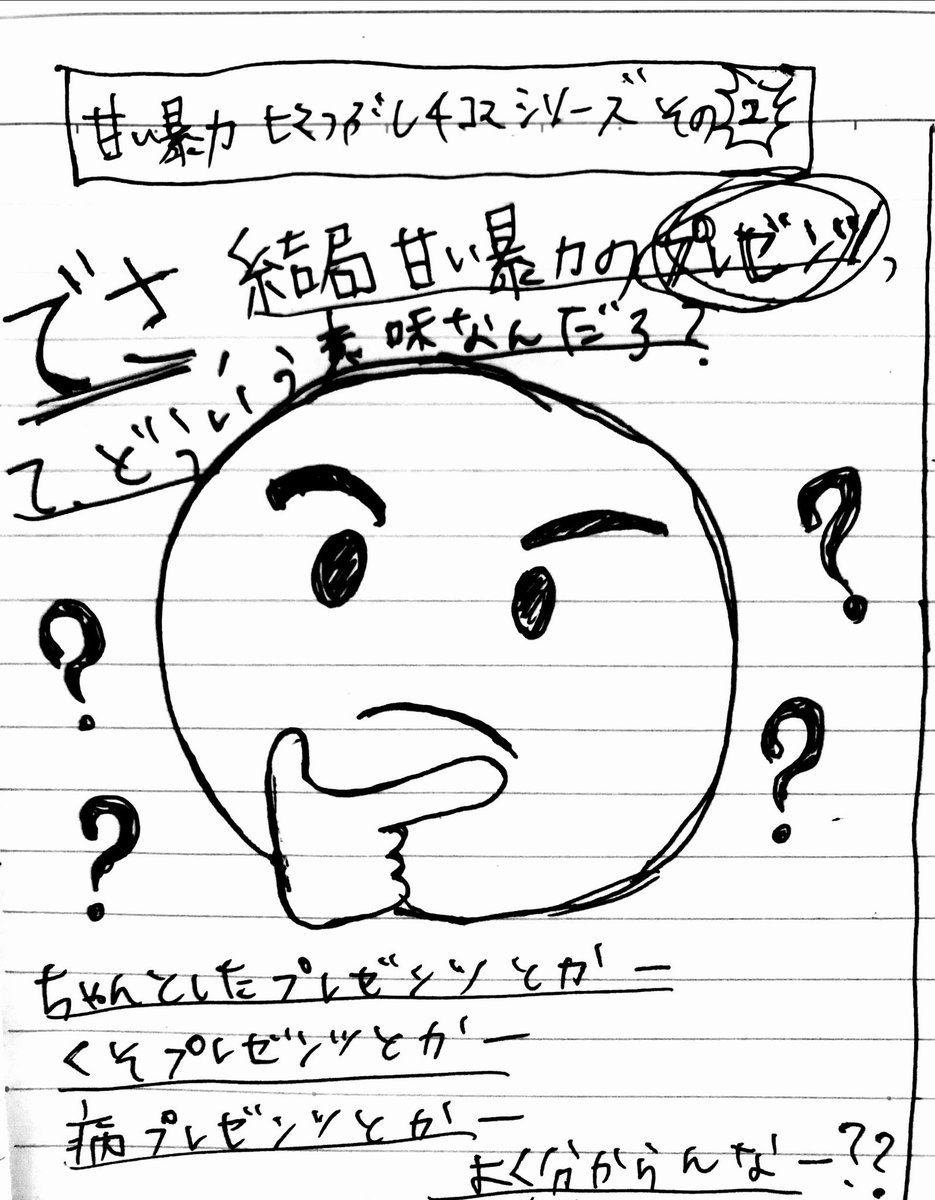 甘い暴力 ヒマつぶし4コマシリーズ その2
でさー、
結局 甘い暴力の プレゼンツ、
て、どういう意味なんだろ?
?
?
?
?
ちゃんとしたプレゼンツとかー
くそプレゼンツとかー
病プレゼンツとかー
よく分からんなー??